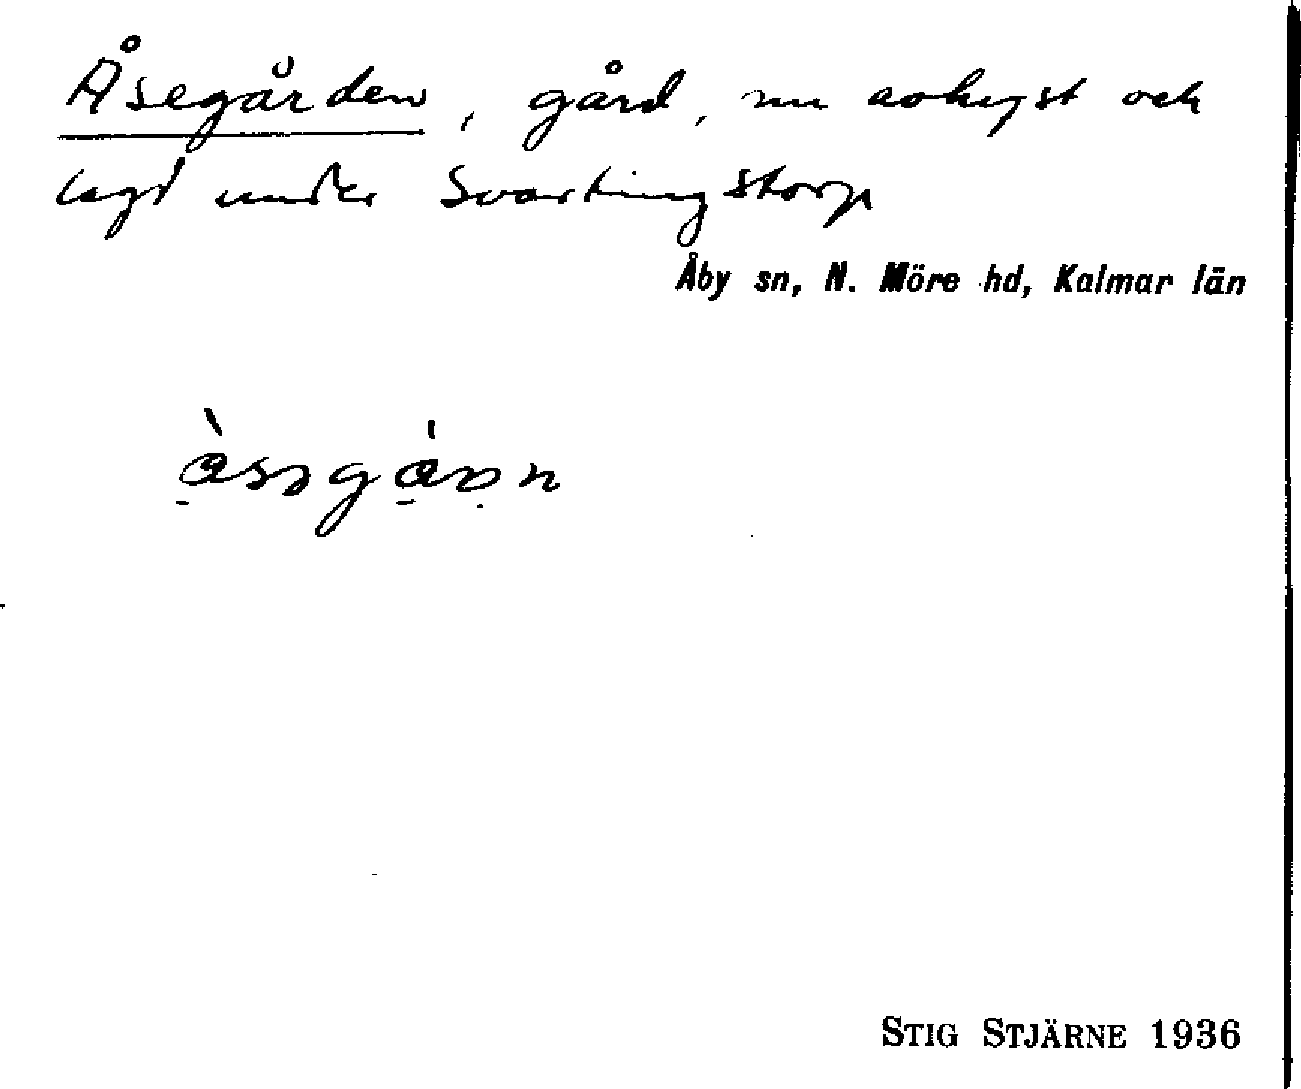 Åsegården, gård, nu avhyst och
lagd under Svartingstorp
Åby sn, N. Möre hd, Kalmar län
STIG STJÄRNE 1936